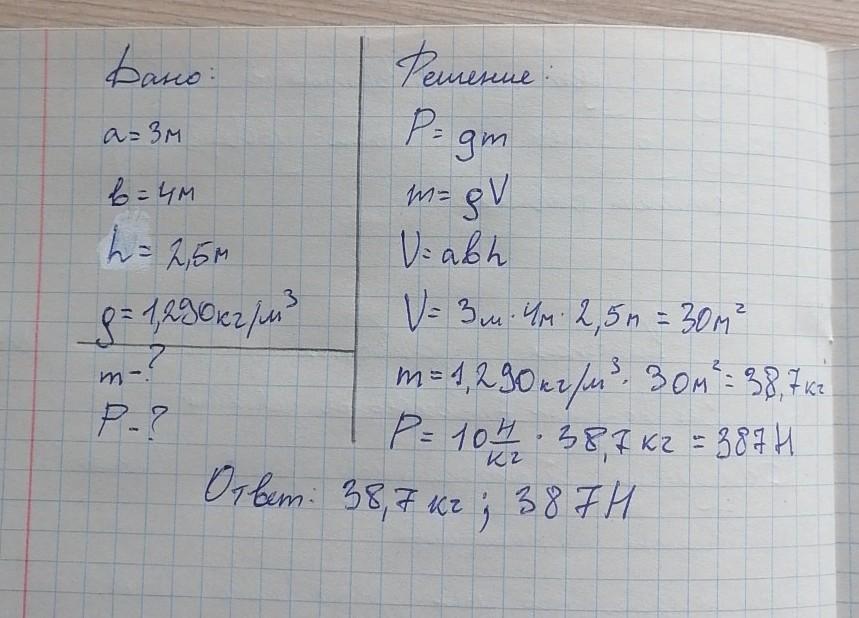 Дано:
a = 3м
в = 4м
h = 2,5м
ρ = 1,290кг/м³
m - ?
P - ?
Решение:
P = gm
m = ρV
V = aвh
V = 3м · 4м · 2,5м = 30м²
m = 1,290кг/м³ · 30м² = 38,7кг
P = 10 Н/кг · 38,7кг = 387Н
Ответ: 38,7кг ; 387Н